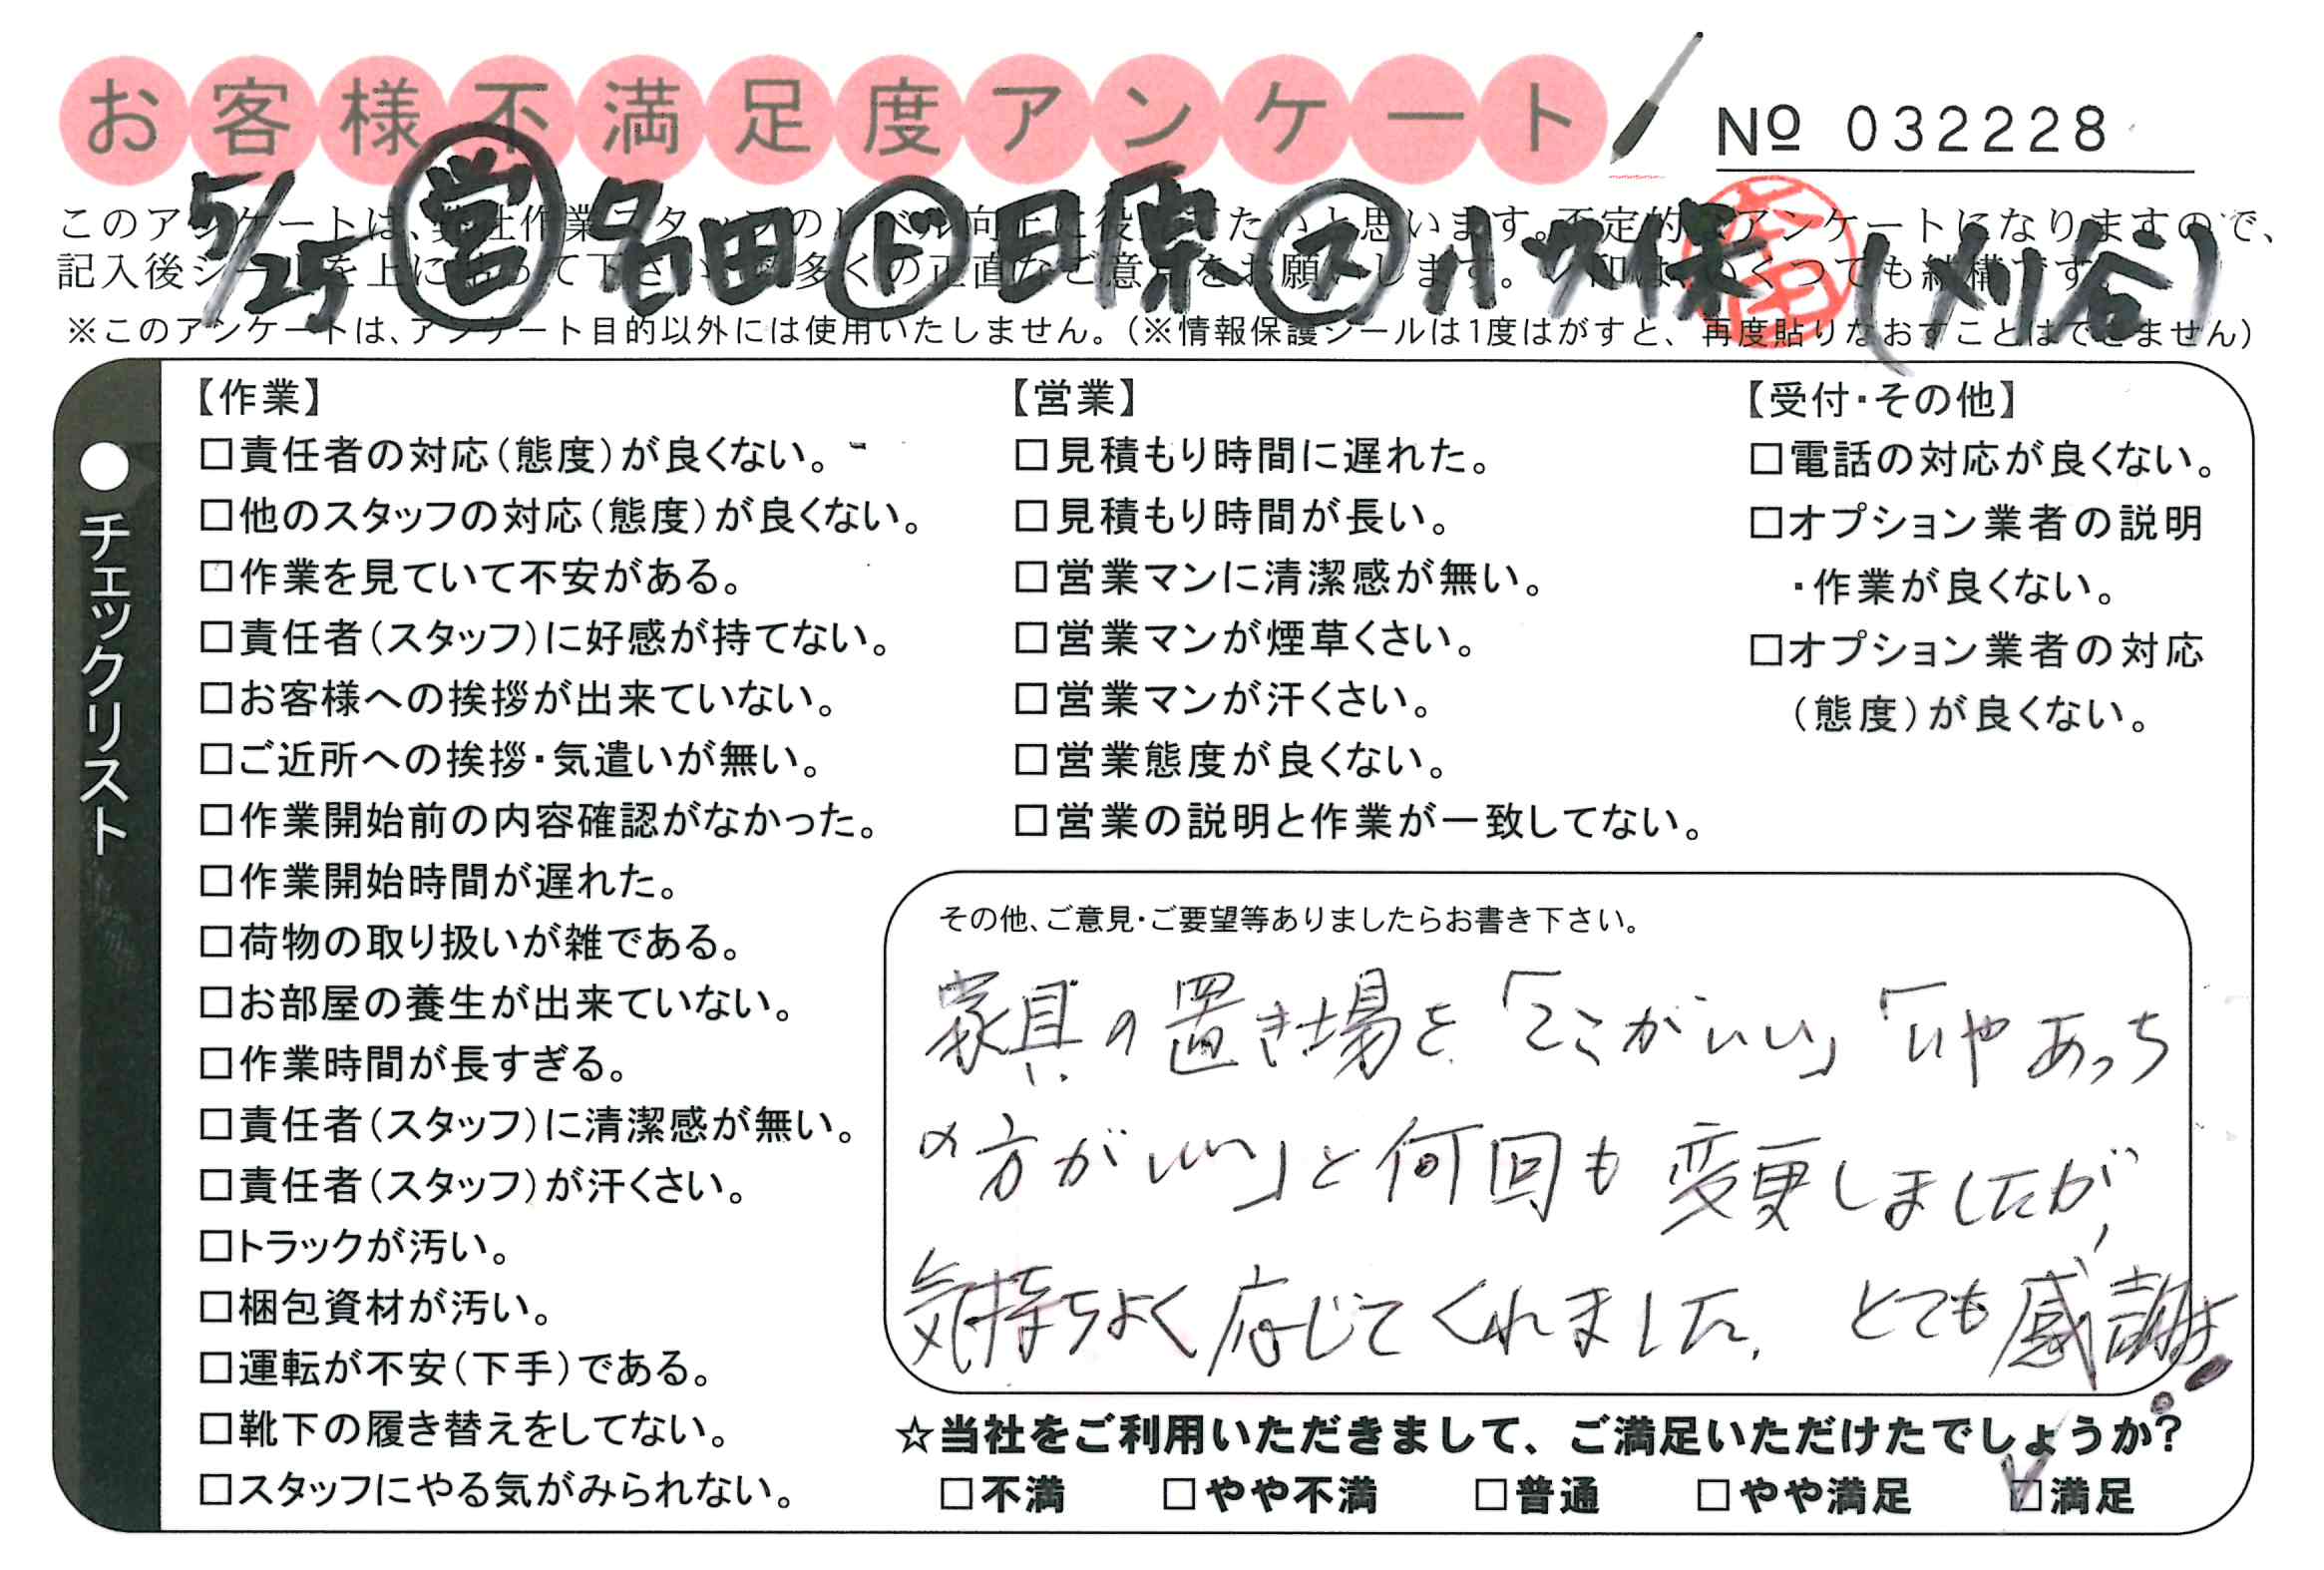 お客様不満足度アンケート
№ 032228
5/25 営 名田 ド 日原 ス 小久保 (刈谷)
このアンケートは、弊社作業スタッフのレベル向上に役立てたいと思います。不定的なアンケートになりますので、
記入後シールを上にはって下さい。数多くの正直なご意見をお願いします。レ印はいくつでも結構です。
※このアンケートは、アンケート目的以外には使用いたしません。(※情報保護シールは1度はがすと、再度貼りなおすことはできません)
●チェックリスト
【作業】
□責任者の対応(態度)が良くない。
□他のスタッフの対応(態度)が良くない。
□作業を見ていて不安がある。
□責任者(スタッフ)に好感が持てない。
□お客様への挨拶が出来ていない。
□ご近所への挨拶・気遣いが無い。
□作業開始前の内容確認がなかった。
□作業開始時間が遅れた。
□荷物の取り扱いが雑である。
□お部屋の養生が出来ていない。
□作業時間が長すぎる。
□責任者(スタッフ)に清潔感が無い。
□責任者(スタッフ)が汗くさい。
□トラックが汚い。
□梱包資材が汚い。
□運転が不安(下手)である。
□靴下の履き替えをしてない。
□スタッフにやる気がみられない。
【営業】
□見積もり時間に遅れた。
□見積もり時間が長い。
□営業マンに清潔感が無い。
□営業マンが煙草くさい。
□営業マンが汗くさい。
□営業態度が良くない。
□営業の説明と作業が一致してない。
【受付・その他】
□電話の対応が良くない。
□オプション業者の説明
・作業が良くない。
□オプション業者の対応
(態度)が良くない。
その他、ご意見・ご要望等ありましたらお書き下さい。
家具の置き場を「ここがいい」「いやあっち
の方がいい」と何回も変更しましたが、
気持ちよく応じてくれました。とても感謝!
☆当社をご利用いただきまして、ご満足いただけたでしょうか?
□不満 □やや不満 □普通 □やや満足 ☑満足